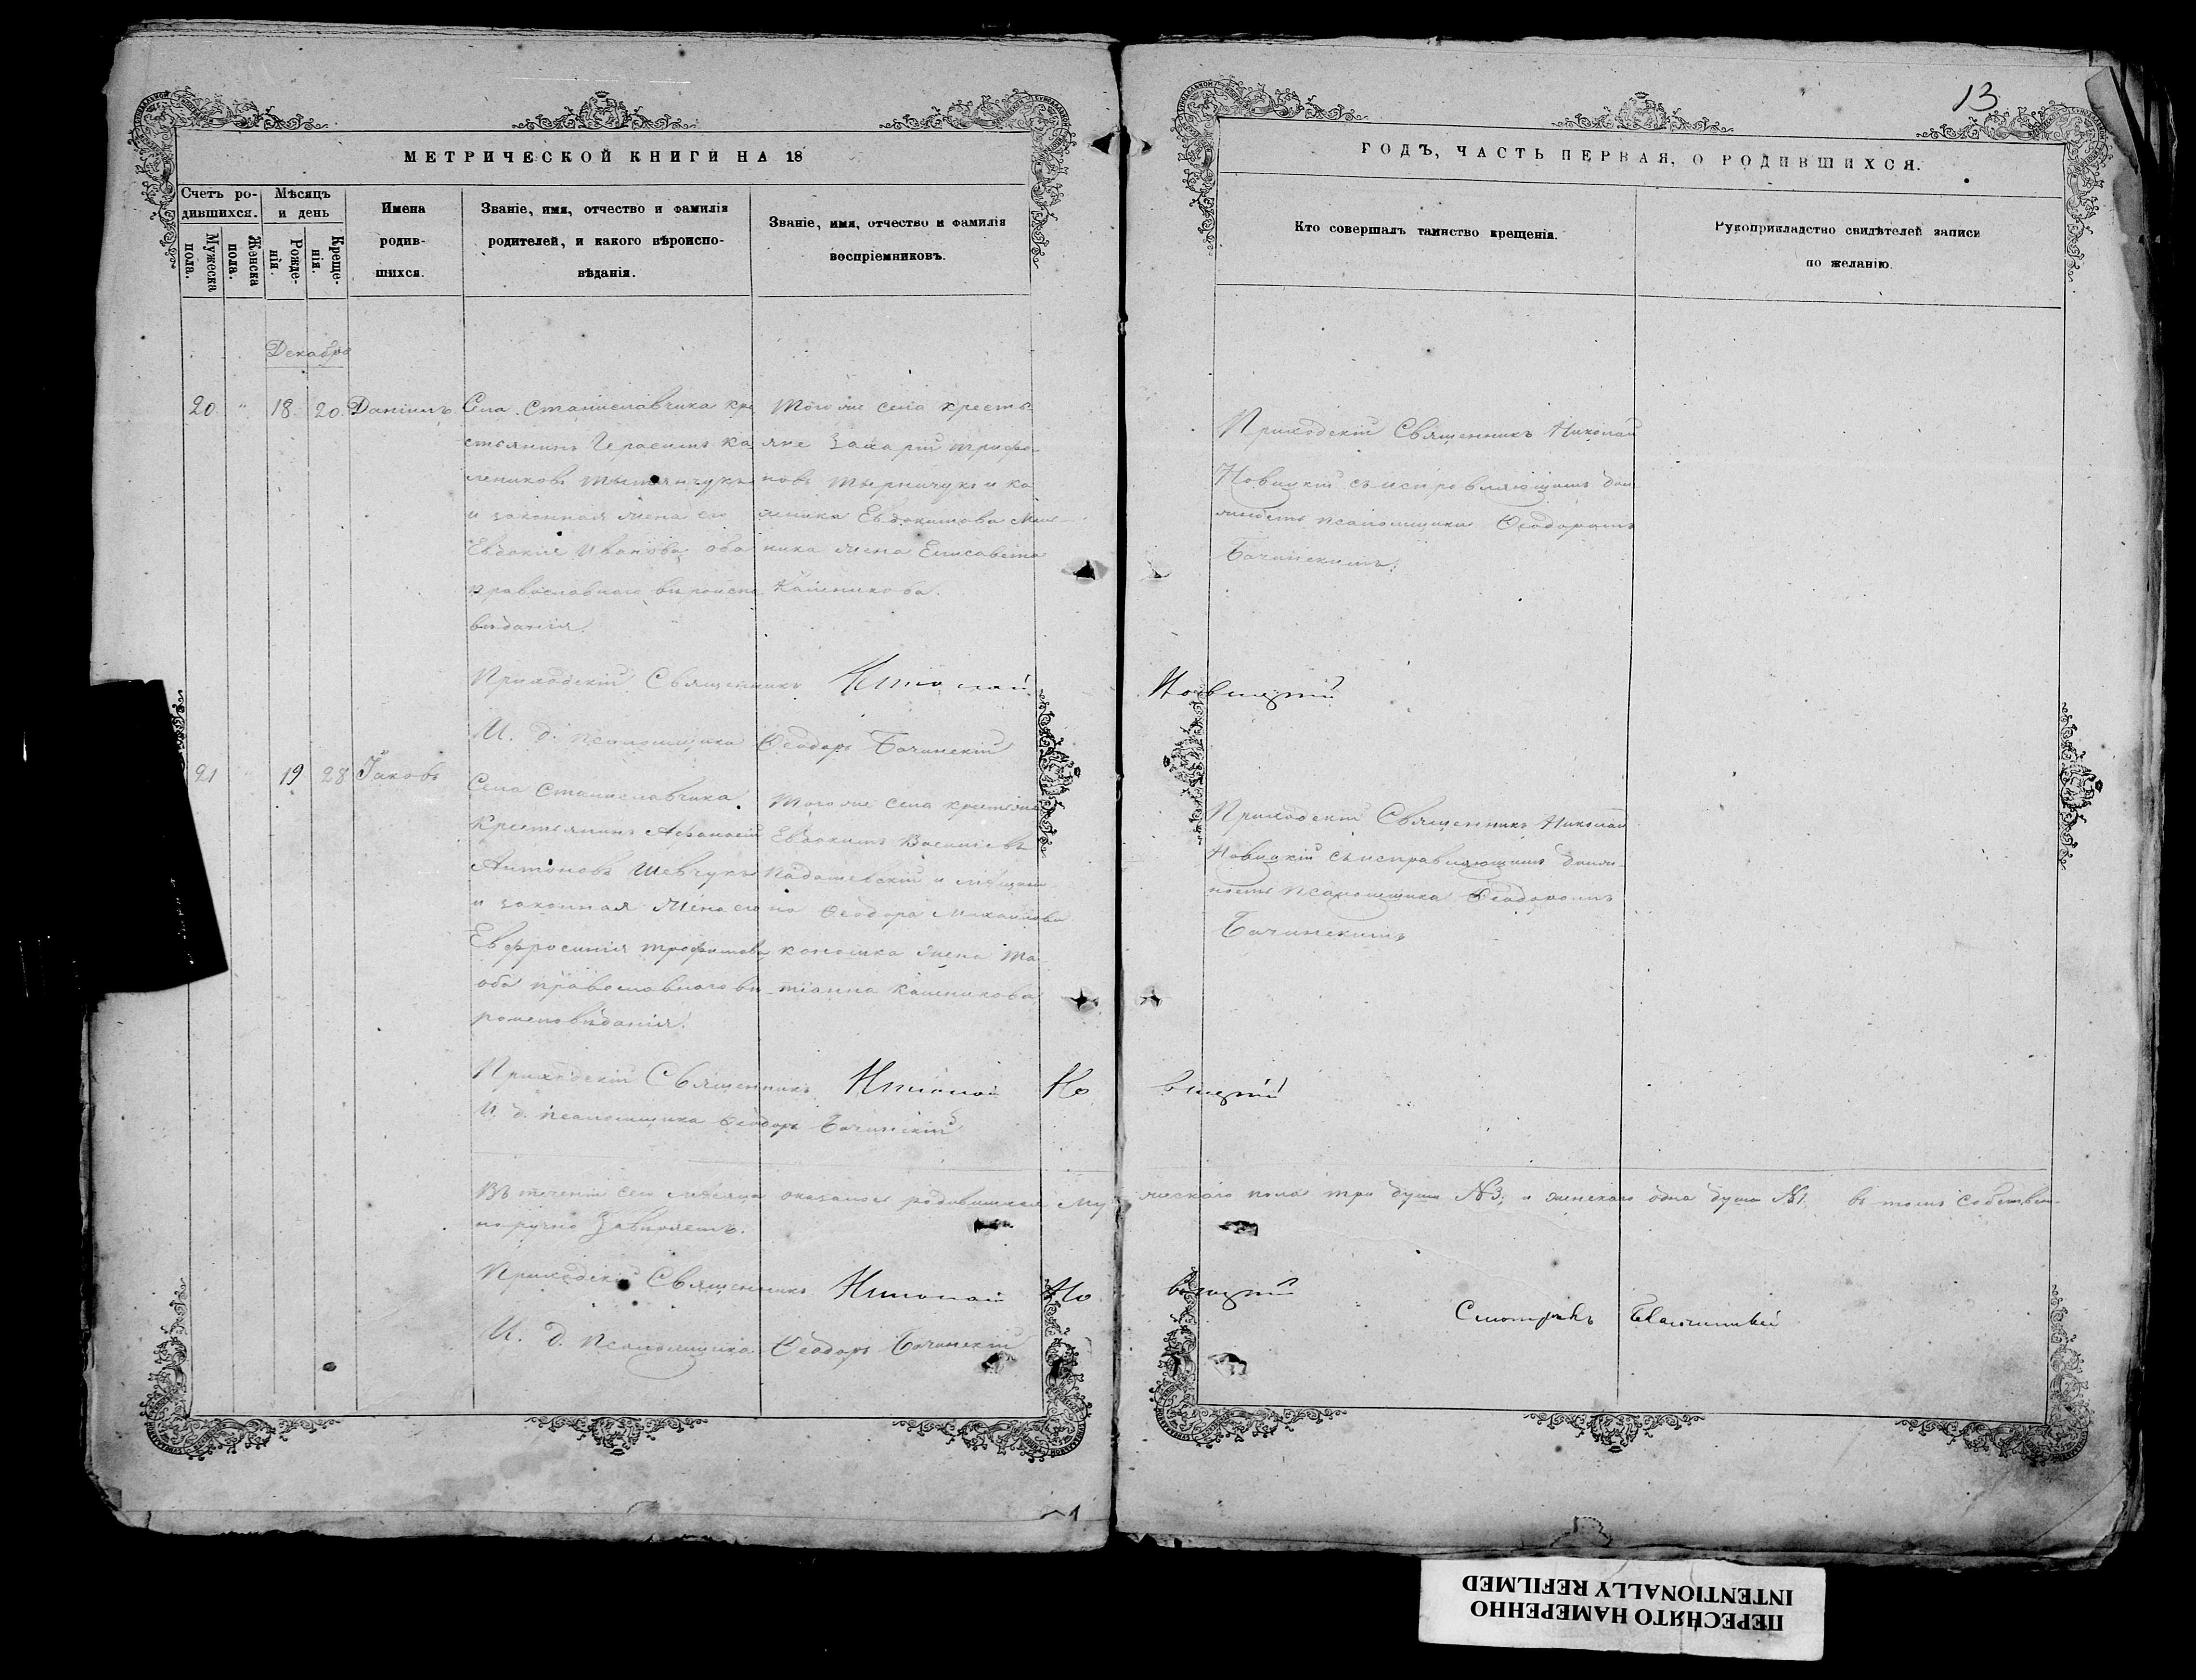 13
МЕТРИЧЕСКОЙ КНИГИ НА 18
ГОДЪ, ЧАСТЬ ПЕРВАЯ, О РОДИВШИХСЯ.
Счетъ ро-
дившихся.
Мужеска
пола.
Женска
пола.
Мѣсяцъ
и день
Рожде-
нія.
Креще-
нія.
Имена
родив-
шихся.
Званіе, имя, отчество и фамилія
родителей, и какого вѣроиспо-
вѣданія.
Званіе, имя, отчество и фамилія
воспріемниковъ.
Кто совершалъ таинство крещенія.
Рукоприкладство свидѣтелей записи
по желанію.
Декабрь
20 " 18 20 Даніилъ
Села Станиславчика кре
стьянинъ Герасимъ Ка
лениковъ
и законная жена его
Евдокія Иванова, оба
православнаго вѣроиспо
вѣданія.
Того же села кресть-
яне Захарій Трифо-
новъ и Ка
леника Евдокимова
ника жена Елисавета
Каленикова.
Приходскій Священникъ Николай
Новицкій съ исправляющимъ дол
жность псаломщика Ѳеодоромъ
Бачинскимъ.
Приходскій Священникъ Николай Новицкій
И. д. псаломщика Ѳеодоръ Бачинскій
21 19 28 Іаковъ
Села Станиславчика
Крестьянинъ Аѳанасій
Антоновъ Шевчукъ
и законная жена его
Евфросинія Трофимова
оба православнаго вѣ-
роисповѣданія.
Того же села крестьяне
Евдокимъ Васильевъ
Ѳеодора Михайлова
жена Та
тіанна Каленикова
Приходскій Священникъ Николай
Новицкій съ исправляющимъ долж-
ность псаломщика Ѳеодоромъ
Бачинскимъ
Приходскій Священникъ Николай Новицкій
И. д. псаломщика Ѳеодоръ Бачинскій
Въ теченіи сего мѣсяца оказалось родившихся мужескаго пола три души №3, и женскаго одна душа №1, въ томъ собствен-
норучно
Приходскій Священникъ Николай Новицкій
И. д. псаломщика Ѳеодоръ Бачинскій
ПЕРЕСНЯТО НАМЕРЕННО
INTENTIONALLY REFILMED